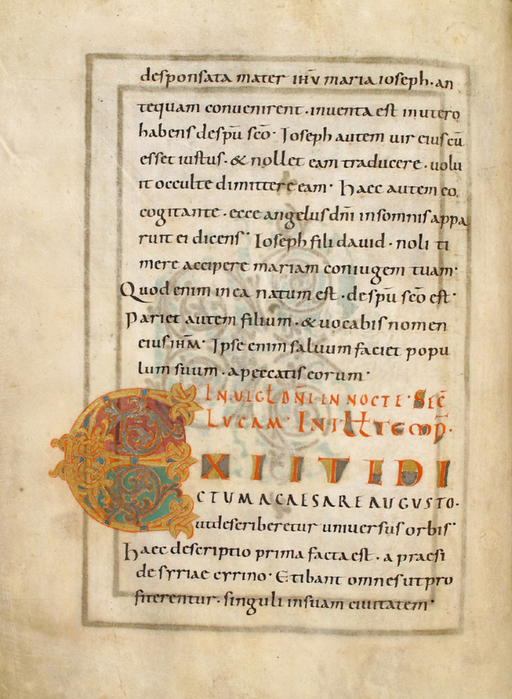 desponsata mater ihu maria ioseph. an
tequam convenirent. inventa est in utero
habens de spu sco. Ioseph autem vir eius cu
esset iustus. & nollet eam traducere. volu
it occulte dimittere eam. Haec autem eo
cogitante. ecce angelus dni in somnis appa
ruit ei dicens. Ioseph fili david. noli ti
mere accipere mariam coniugem tuam.
Quod enim in ea natum est. de spu sco est.
Pariet autem filium. & vocabis nomen
eius ihm. Ipse enim salvum faciet popu
lum suum. a peccatis eorum.
IN VIGL DNI IN NOCTE. SEC
LUCAM. IN ILL TEMP.
EXIIT EDI
CTUM A CAESARE AUGUSTO.
ut describeretur universus orbis
Haec descriptio prima facta est. a praesi
de syriae cyrino. Et ibant omnes ut pro
fiterentur. singuli in suam civitatem.